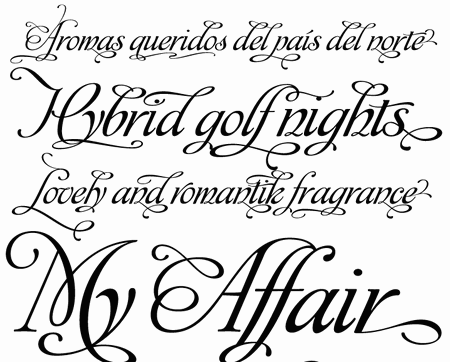 Aromas queridos del país del norte
Hybrid golf nights
Lovely and romantik fragrance
My Affair